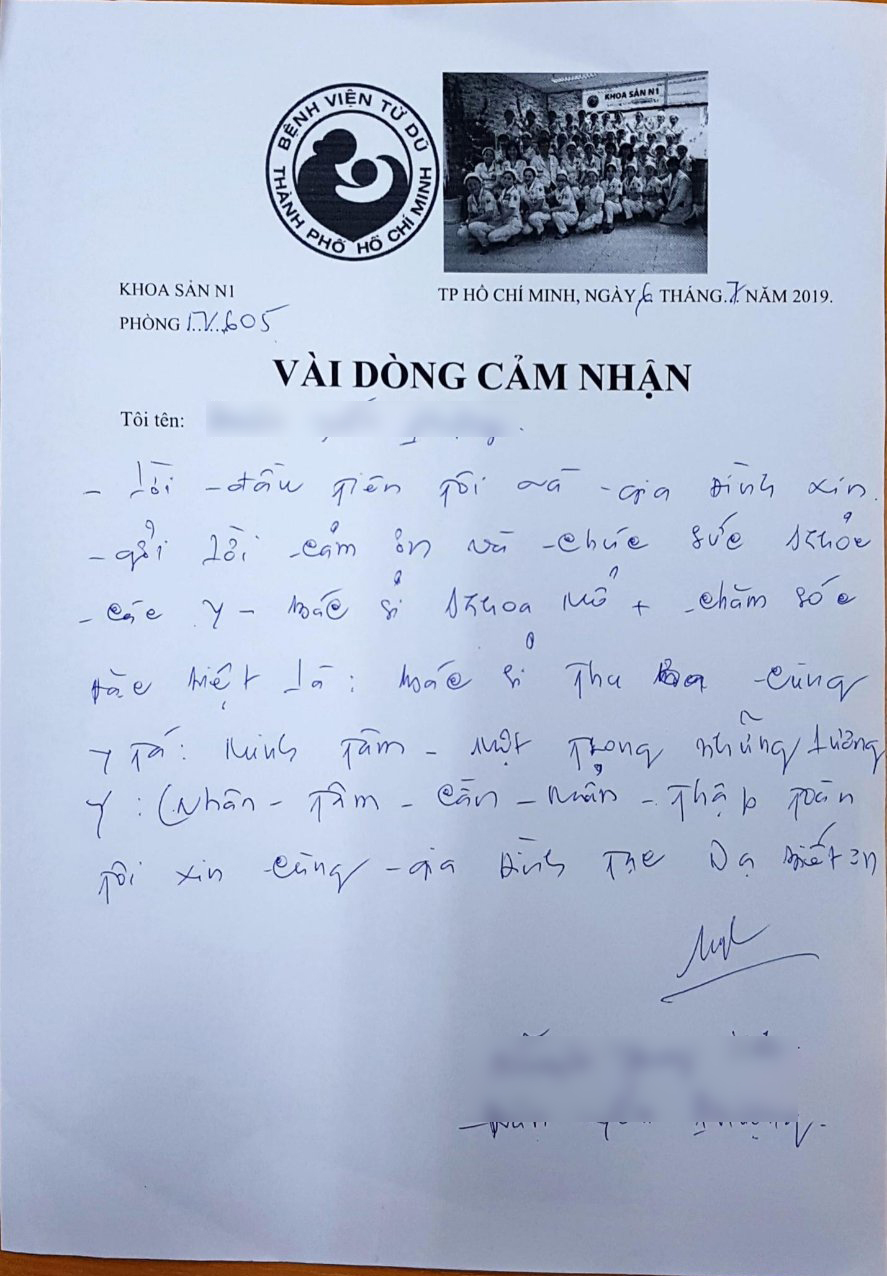 BỆNH VIỆN TỪ DŨ
THÀNH PHỐ HỒ CHÍ MINH
KHOA SẢN N1
KHOA SẢN N1
TP HỒ CHÍ MINH, NGÀY 6 THÁNG.7 NĂM 2019.
PHÒNG 605
VÀI DÒNG CẢM NHẬN
Tôi tên:
- Lời đầu tiên tôi và gia đình xin
gửi lời cảm ơn và chúc sức khỏe
các y - bác sỉ khoa mổ + chăm sóc
đặc biệt là : bác sỉ Thu Ba cùng
y tá : Minh Tâm - một trong những lương
y : (Nhân - Tâm - Cần - Mẩn - Thập toàn
tôi xin cùng gia đình Thực Dạ biết ơn